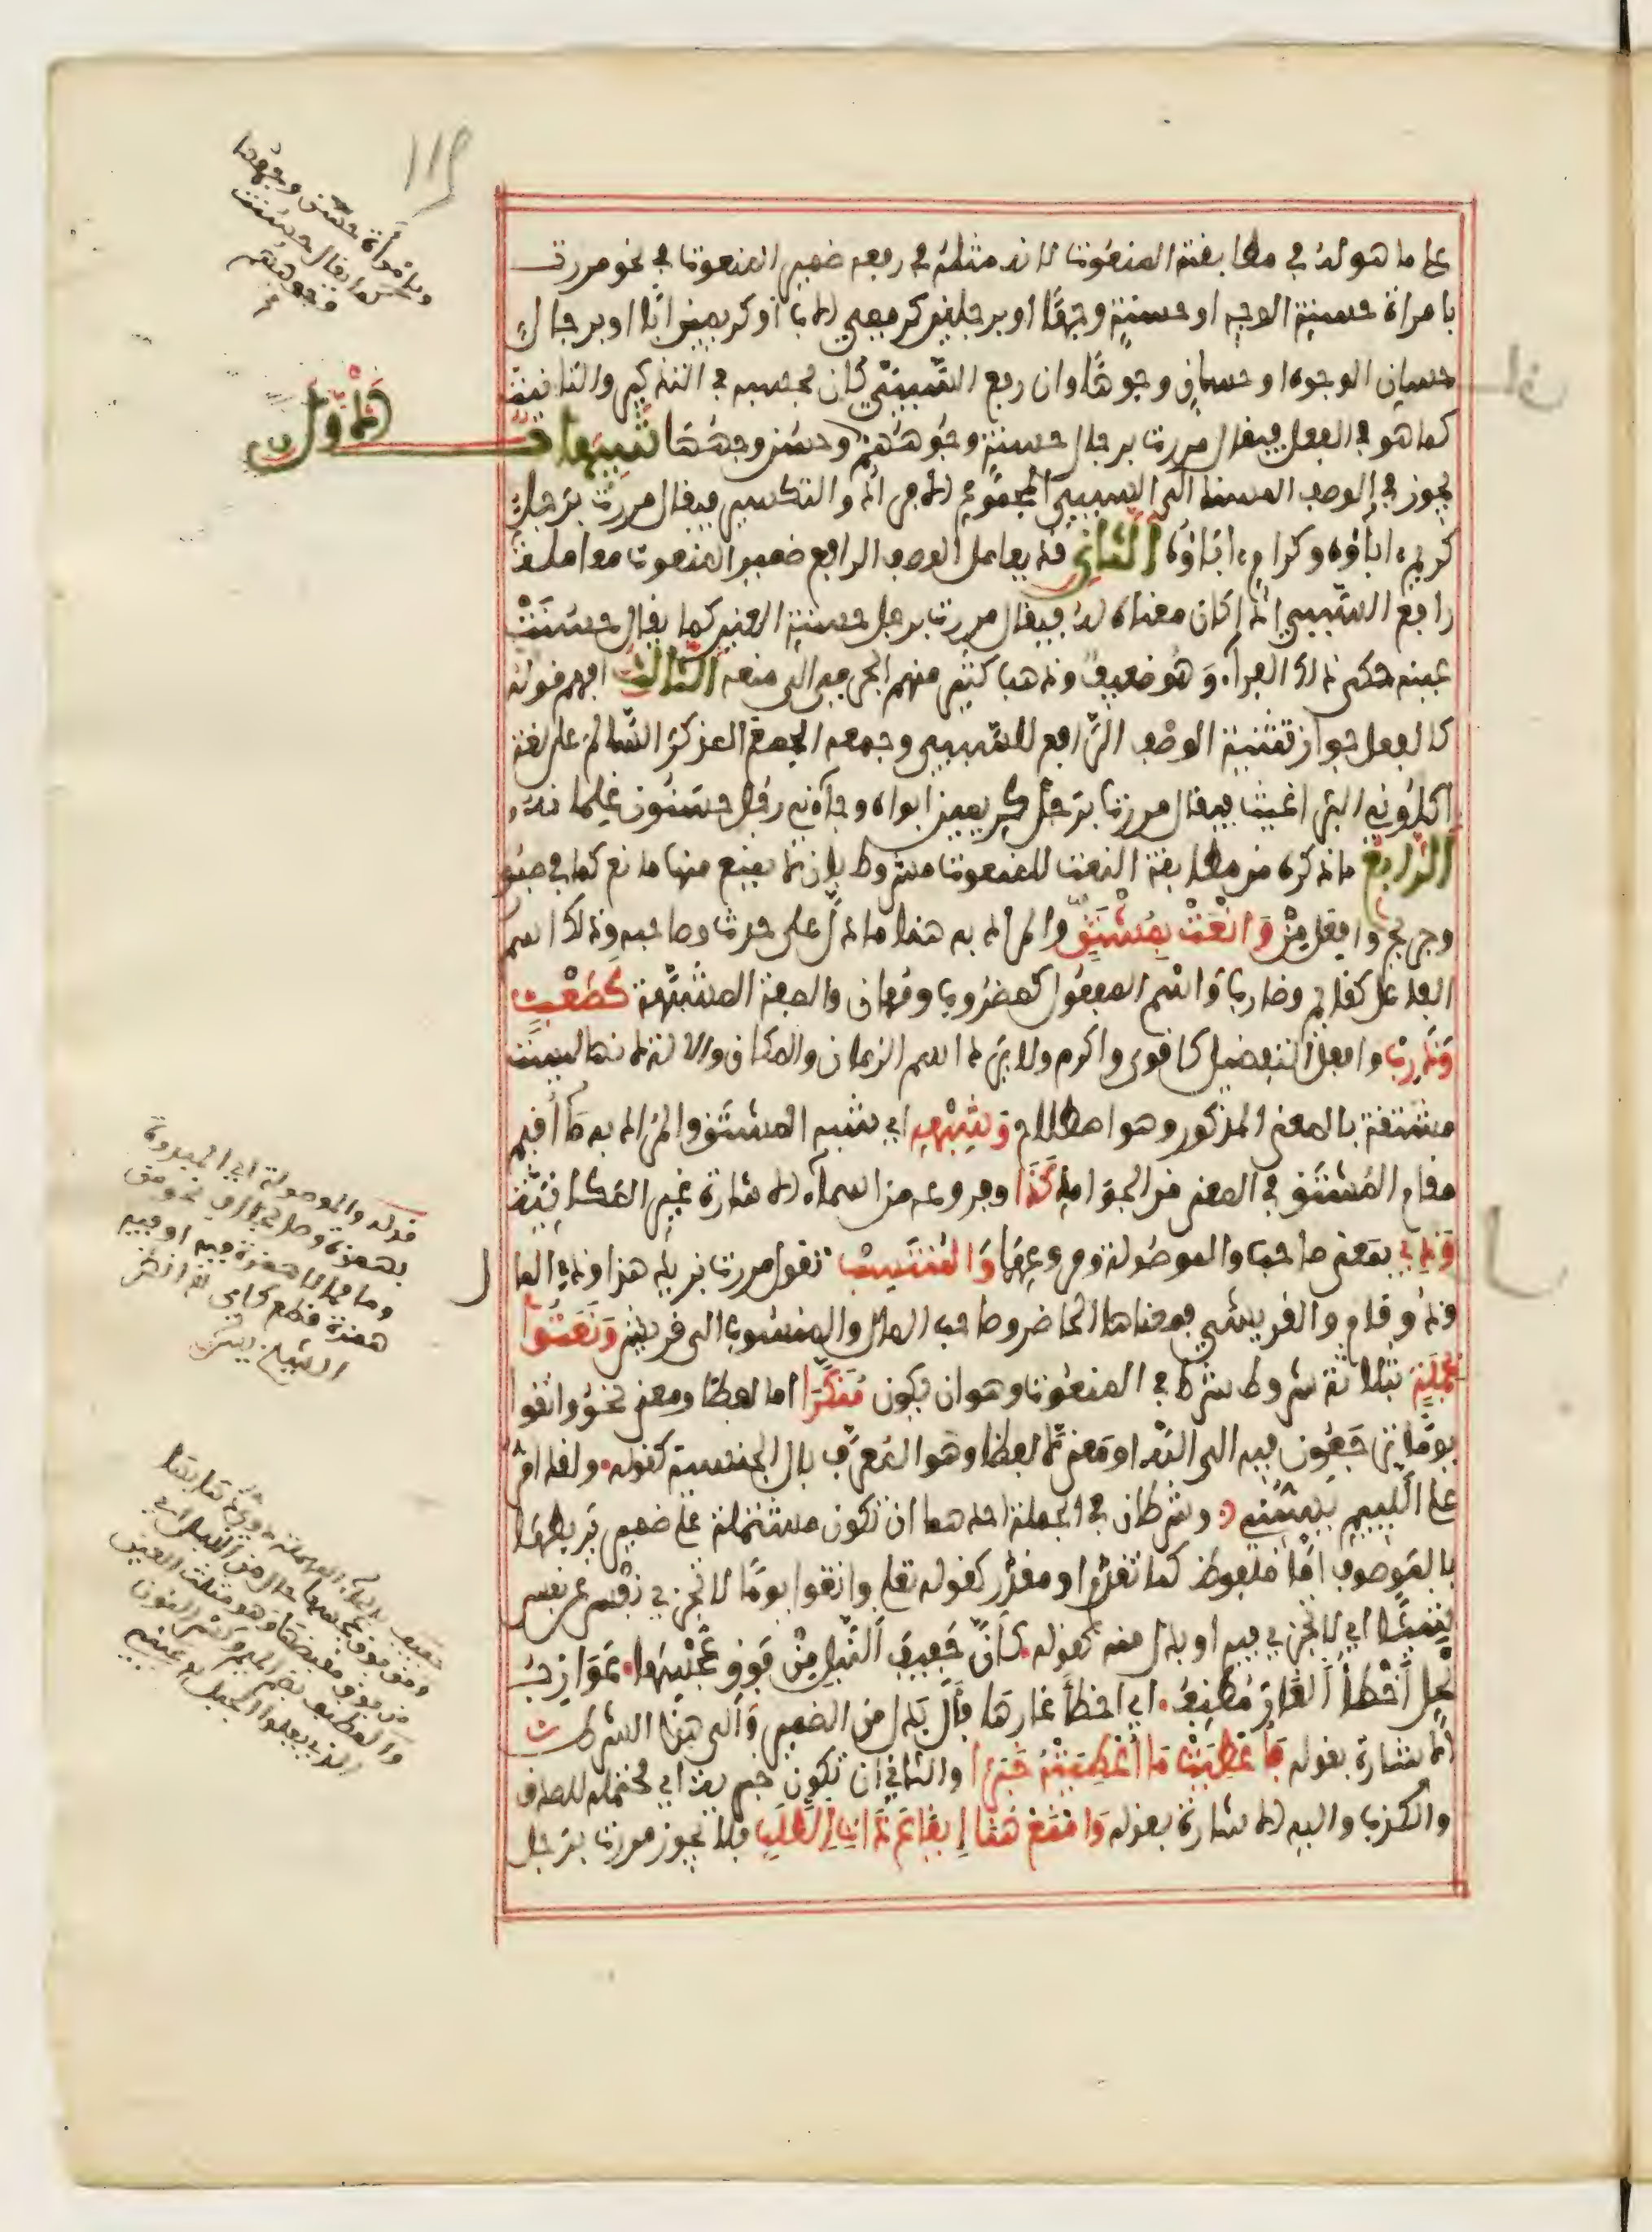 على ما هو له في مطابقة المنعوت لانه مثله في رفعه ضمير المنعوت في نحو مررت
بامراة حسنة الوجه او حسنة وجها او برجلين كريمي الاب او كريمين ابا او برجال
حسان الوجوه او حسان وجوها وان رفع السببي كان بحسبه في التذكير والتانيث
كما هو في الفعل فيقال مررت برجال حسنة وجوههم وحسن وجهها تنبيهات
الاول
يجوز في الوصف المسند الى السببي المجموع الافراد والتكسير فيقال مررت برجل
كريم اباؤه وكرام اباؤه الثاني قد يعامل الوصف الرافع ضمير المنعوت معاملة
رافع السببي اذا كان معناه له فيقال مررت برجل حسنة العين كما يقال حسنت
عينه حكى ذلك الفراء وهو ضعيف وذهب كثير منهم الجرمي الى منعه الثالث افهم قوله
كالفعل جواز تثنية الوصف الرافع للسببي وجمعه الجمع المذكر السالم على لغة
اكلوني البراغيث فيقال مررت برجل كريمين ابواه وجاءني رجل حسنون غلمانه
الرابع ما ذكره من مطابقة النعت للمنعوت مشروط بان لا يمنع منها مانع كما في صبور
وجريح وافعل من وانعت بمشتق والمراد به هنا ما دل على حدث وصاحبه وذلك اسم
الفاعل كقائم وضارب واسم المفعول كمضروب ومهان والصفة المشبهة كصعب
وذرب وافعل التفضيل كاقوى واكرم ولا يرد اسم الزمان والمكان والالة لانها ليست
مشتقة بالمعنى المذكور وهو اصطلاح وشبهه اي شبه المشتق والمراد به ما اقيم
مقام المشتق في المعنى من الجوامد كذا وفروعه من اسماء الاشارة غير المكانية
وذي بمعنى صاحب والموصولة وفروعها والمنتسب تقول مررت بزيد هذا وذي المال
وذو قام والقريشي فمعناها الحاضر وصاحب المال والمنسوب الى قريش ونعتوا
بجملة بثلاثة شروط شرط في المنعوت وهو ان يكون منكرا اما لفظا ومعنى نحو واتقوا
يوما ترجعون فيه الى الله او معنى لا لفظا وهو المعرف بال الجنسية كقوله ولقد امر
على اللئيم يسبني وشرطان في الجملة احدهما ان تكون مشتملة على ضمير يربطها
بالموصوف اما ملفوظ كما تقدم او مقدر كقوله تعلى واتقوا يوما لا تجزي نفس عن نفس
شيئا اي لا تجزي فيه او بدل منه كقوله كان حفيف النبل من فوق عجسها عوازب
نحل اخطا الغار مطنف اي اخطا غارها فال بدل من الضمير والى هذا الشرط
الاشارة بقوله فاعطيت ما اعطيته خبرا والثاني ان تكون خبرية اي محتملة للصدق
والكذب واليه الاشارة بقوله وامنع هنا ايقاع ذات الطلب فلا يجوز مررت برجل
وبامرأة حسن وجهها
كما يقال حسنت
وجوههم
قوله والموصولة اي المبدوءة
بهمزة وصل
همزة قطع